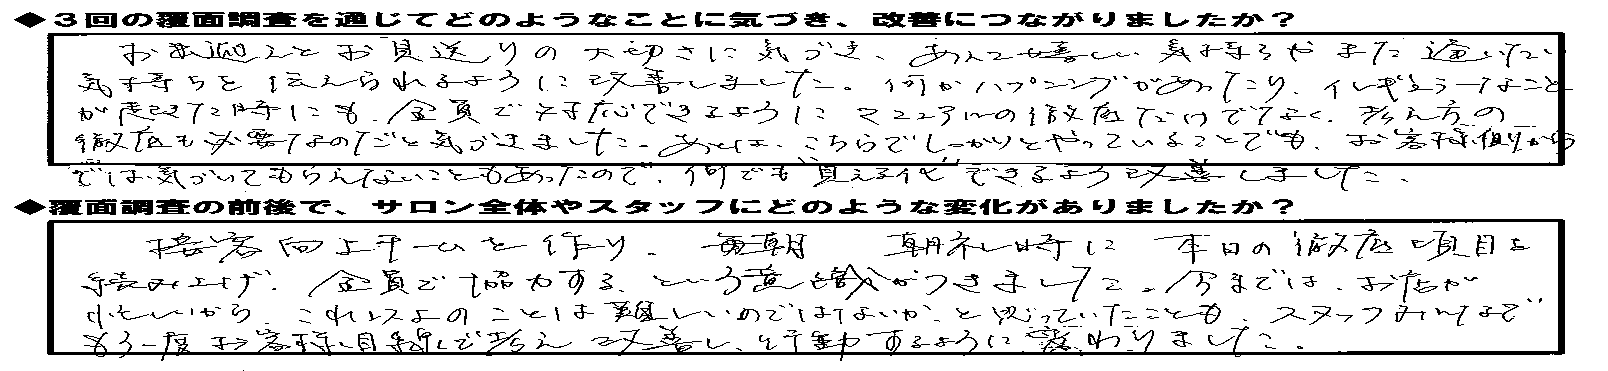 ◆３回の覆面調査を通じてどのようなことに気づき、改善につながりましたか？
お出迎えとお見送りの大切さに気づき、あえて嬉しい気持ちやまた逢いたい
気持ちを伝えられるように改善しました。何かハプニングがあったり、イレギュラーなこと
が起きた時にも、全員で対応できるようにマニュアルの徹底だけでなく、考え方の
徹底も必要なのだと気づきました。あとは、こちらでしっかりとやっていることでも、お客様側から
では気づいてもらえないこともあったので、何でも“見える化”できるよう改善しました。
◆覆面調査の前後で、サロン全体やスタッフにどのような変化がありましたか？
接客向上チームを作り、毎朝 朝礼時に 本日の徹底項目を
読み上げ、全員で協力する、という意識がつきました。今までは、お店が
小さいから、これ以上のことは難しいのではないか、と思っていたことも、スタッフみんなで
もう一度お客様目線で考え 改善し、行動するように変わりました。